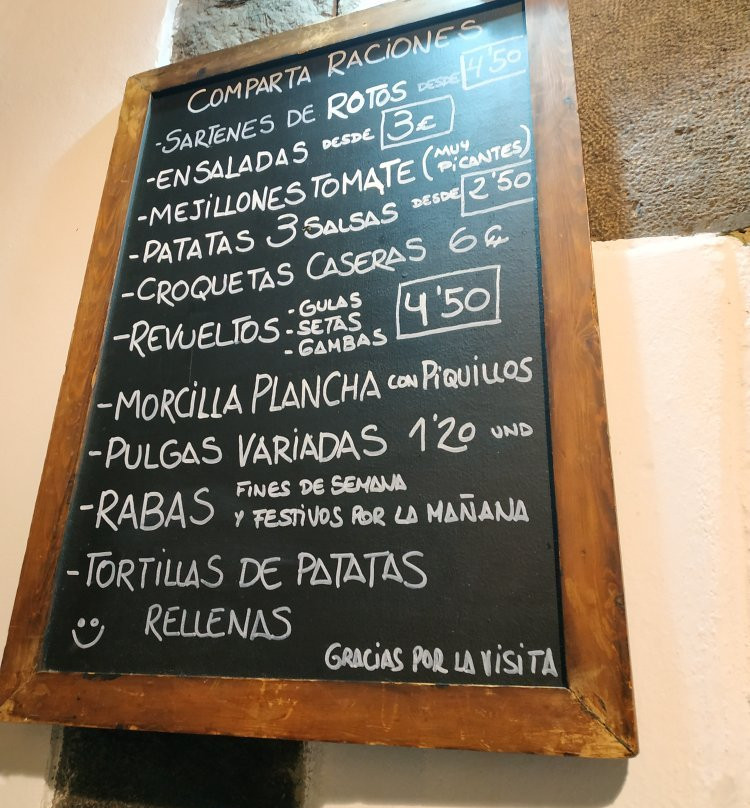 COMPARTA RACIONES
-SARTENES DE ROTOS DESDE 4'50
-ENSALADAS DESDE 3€
-MEJILLONES TOMATE (MUY PICANTES)
-PATATAS 3 SALSAS DESDE 2'50
-CROQUETAS CASERAS 6€
-REVUELTOS -GULAS 4'50
-SETAS
-GAMBAS
-MORCILLA PLANCHA CON PIQUILLOS
-PULGAS VARIADAS 1'20 UND
-RABAS FINES DE SEMANA
Y FESTIVOS POR LA MAÑANA
-TORTILLAS DE PATATAS
RELLENAS
GRACIAS POR LA VISITA